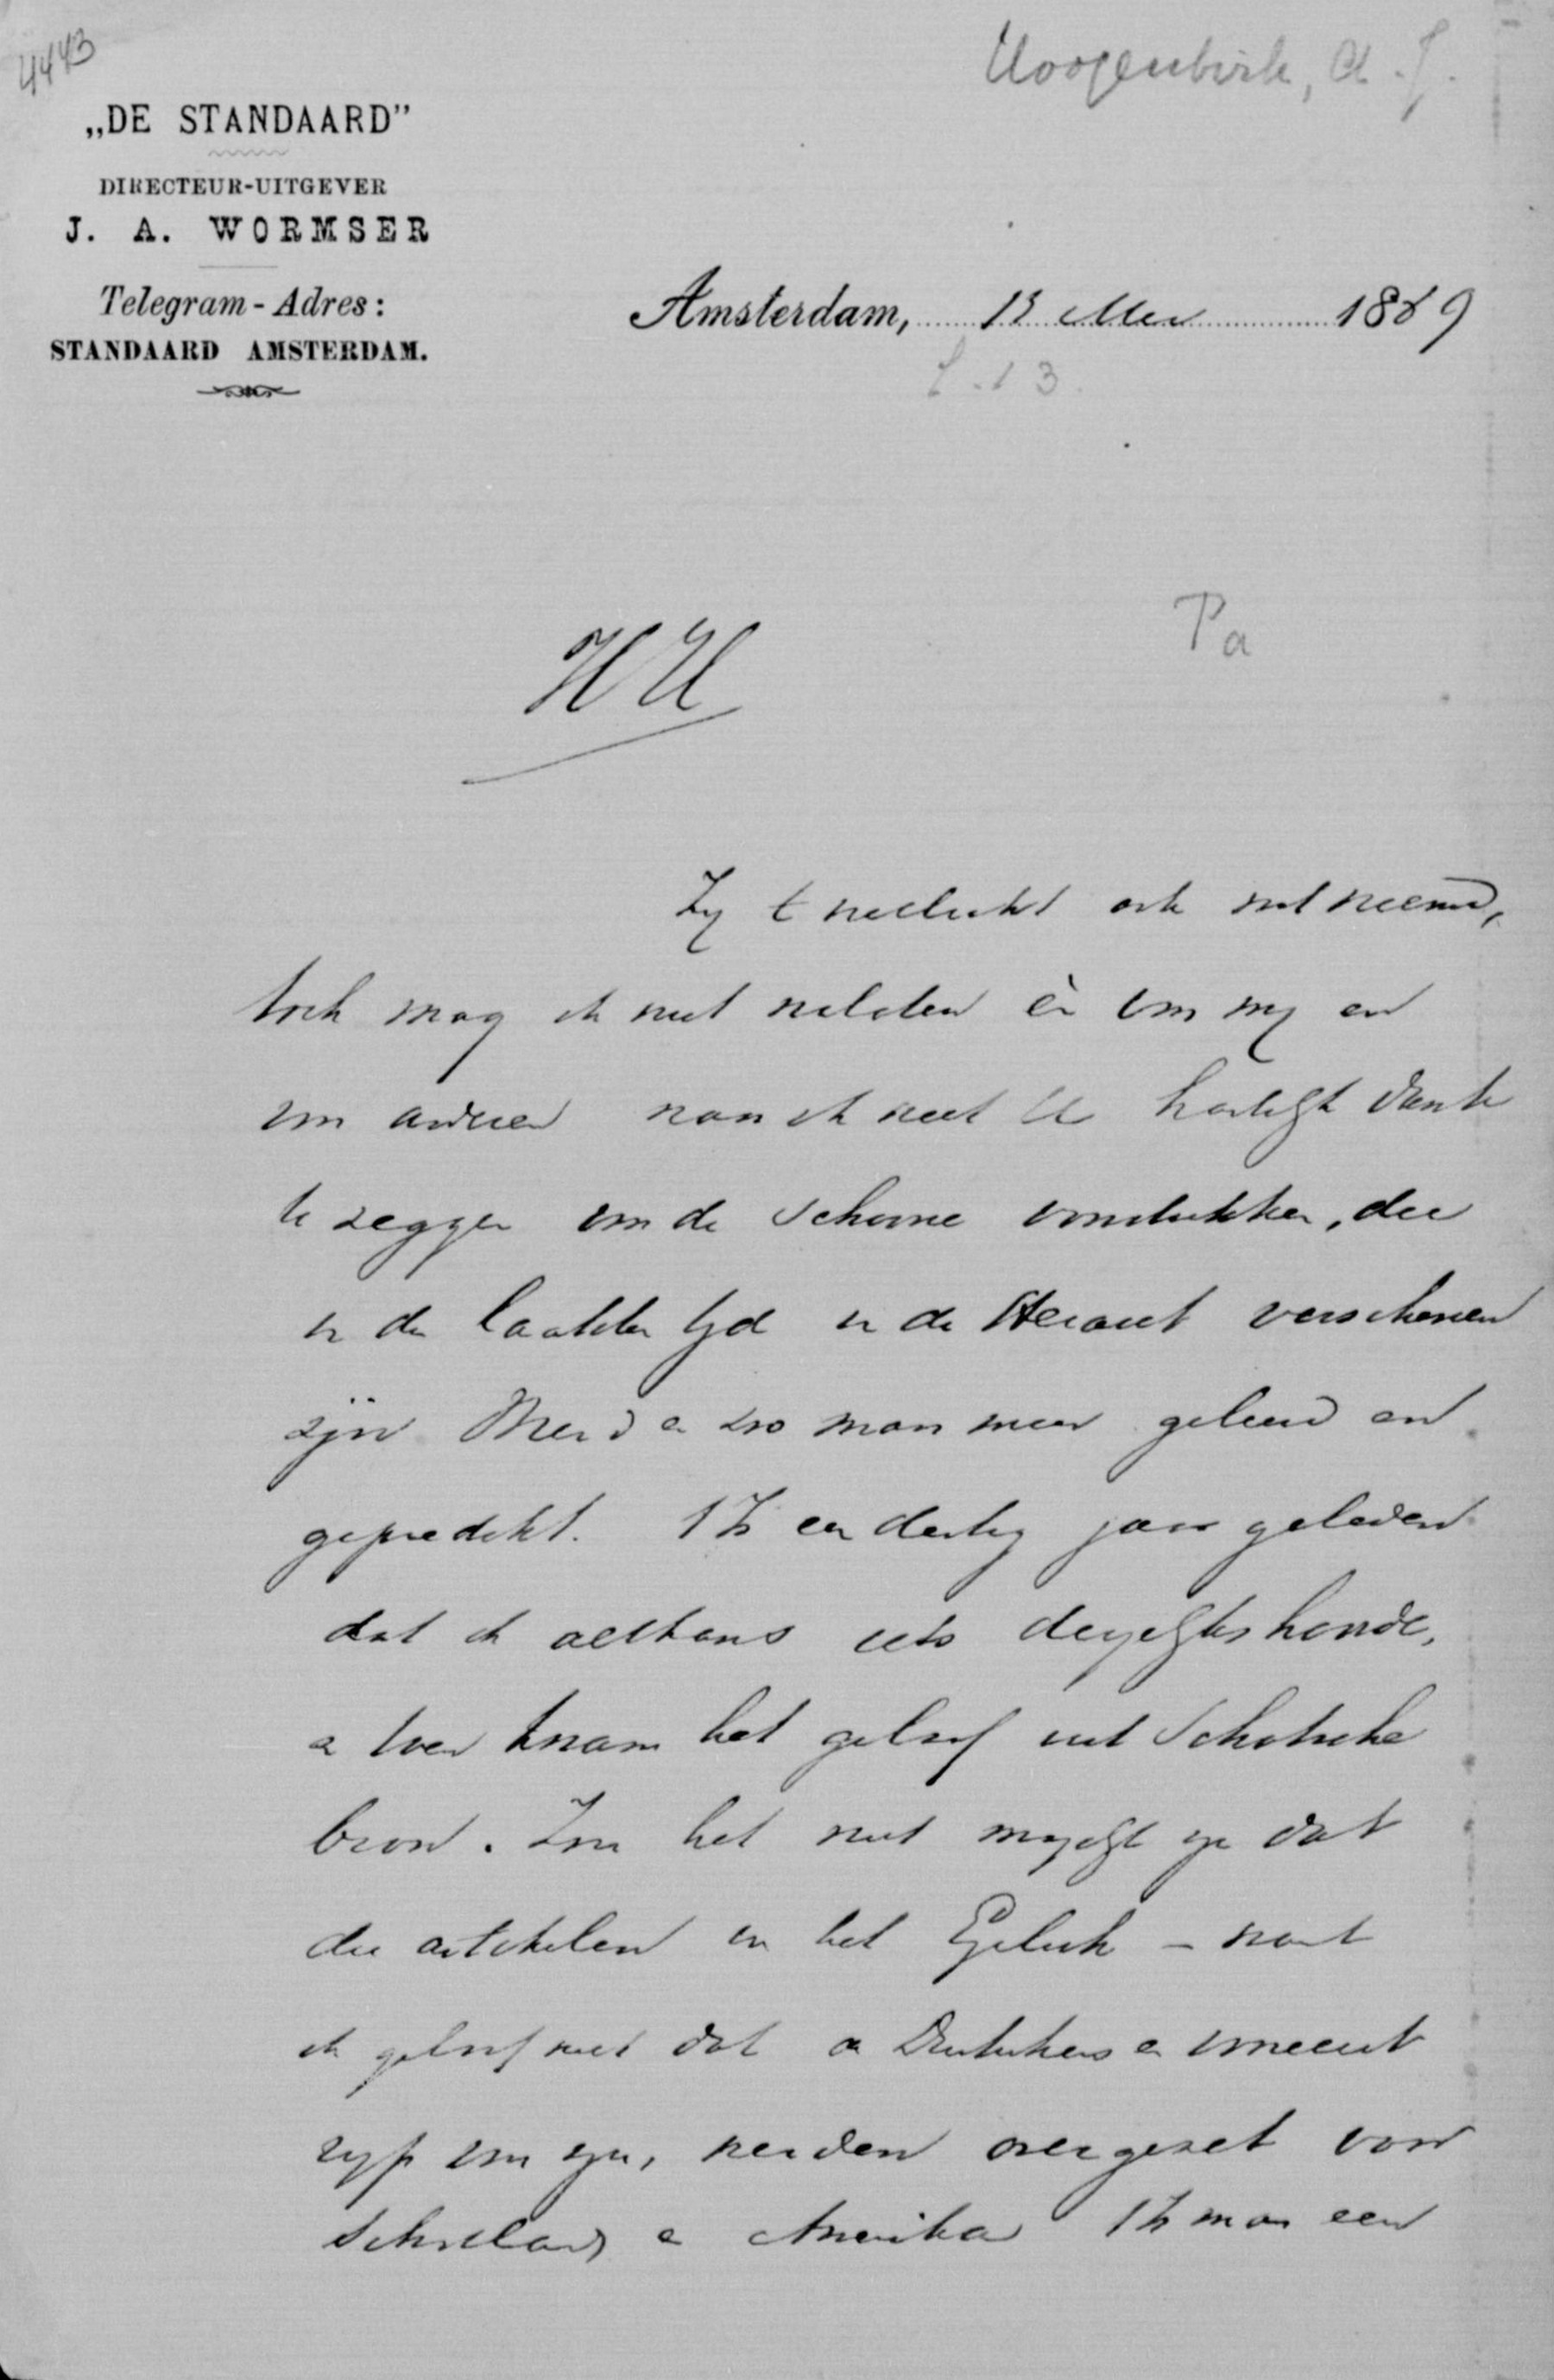 4443
Hoogenbirk, A. J.
„DE STANDAARD”
DIRECTEUR-UITGEVER
J. A. WORMSER
Telegram-Adres:
STANDAARD AMSTERDAM.
Amsterdam, 13 Mei 1889
L. 13.
Pa
HU
Zij t wellicht ook wat vreemd,
toch mag ik niet nalaten èn om mij en
om anderen van ik weet U hartelijk dank
te zeggen om de schoone hoofdstukken, die
in den laatsten tijd in de Heraut verschenen
zijn. Werd er zoo maar meer geleerd en
gepredikt. 't Is een dertig jaar geleden
dat ik althans iets dergelijks hoorde,
en toen kwam het geloof uit Schotsche
bron. Zou het niet mogelijk zijn dat
die artikelen in het Engelsch – want
ik geloof niet dat de Duitschers er
rijp voor zijn, werden overgezet voor
Schotland en Amerika 't Is maar een